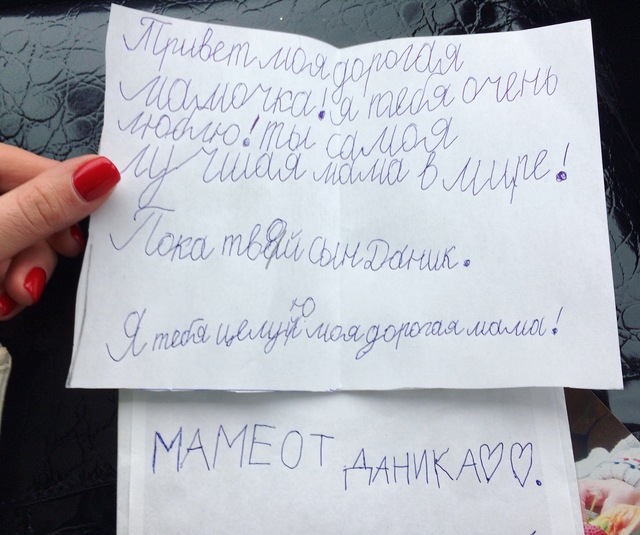 Привет моя дорогая
мамочка! я тебя очень
люблю! ты самая
лучшая мама в мире!
Пока твой сын Даник.
Я тебя целую моя дорогая мама!
МАМЕ ОТ ДАНИКА♡♡.